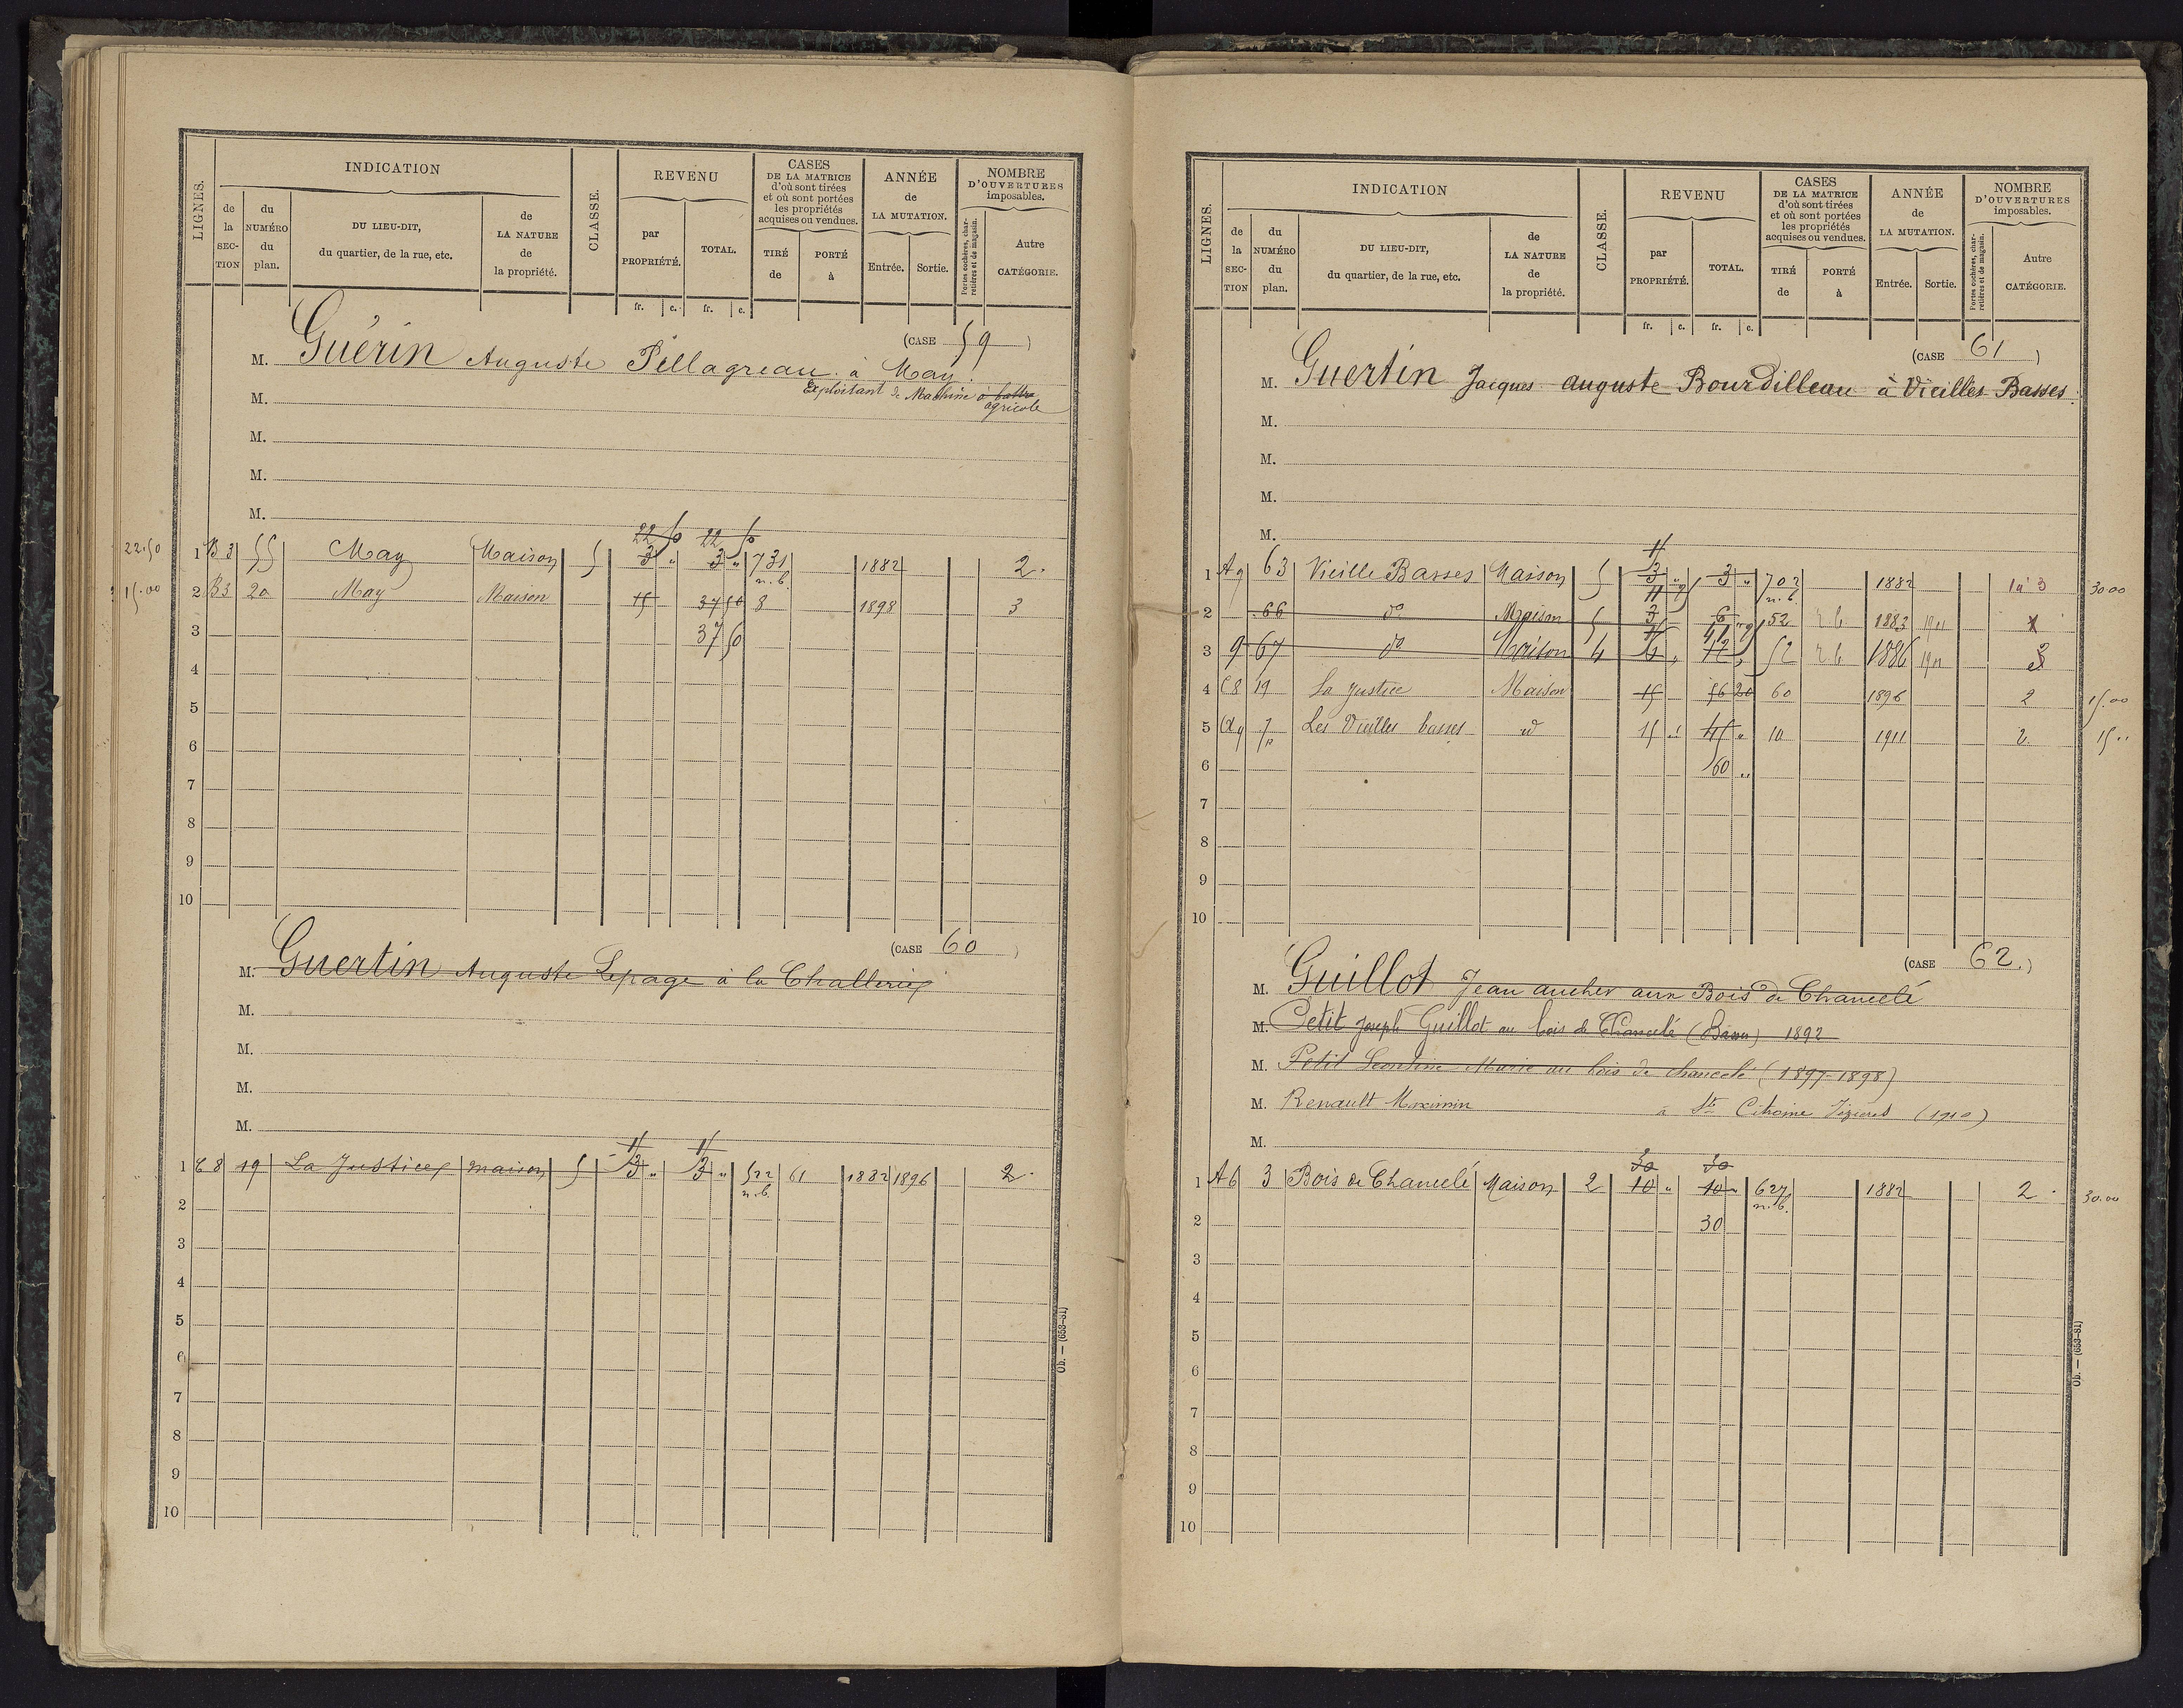 LIGNES.
INDICATION
de la SECTION
du NUMÉRO du plan.
DU LIEU-DIT, du quartier, de la rue, etc.
de LA NATURE de la propriété.
CLASSE.
REVENU
par PROPRIÉTÉ.
TOTAL.
fr. c. fr. c.
CASES DE LA MATRICE d'où sont tirées et où sont portées les propriétés acquises ou vendues.
TIRÉ de
PORTÉ à
ANNÉE de LA MUTATION.
Entrée. Sortie.
NOMBRE D'OUVERTURES imposables.
Portes cochères, charretières et de magasin.
Autre CATÉGORIE.
(CASE 59)
M. Guérin Auguste Pillagreau à May.
M. Exploitant de Machine à battre
agricole
M.
M.
M.
22 50 22 50
22.50 1 B3 55 May Maison 5 3 " 3 " 731 n.b. 1882 2.
15.00 2 B3 20 May Maison 15 37 50 8 1898 3
3 37 50
4
5
6
7
8
9
10
(CASE 60)
M. Guertin Auguste Lepage à la Challerie
M.
M.
M.
M.
1 C8 19 La Justice maison 5 3 " 3 " 522 n.b. 61 1882 1896 2.
2
3
4
5
6
7
8
9
10
Ob. — (653-81)
LIGNES.
INDICATION
de la SECTION
du NUMÉRO du plan.
DU LIEU-DIT, du quartier, de la rue, etc.
de LA NATURE de la propriété.
CLASSE.
REVENU
par PROPRIÉTÉ.
TOTAL.
fr. c. fr. c.
CASES DE LA MATRICE d'où sont tirées et où sont portées les propriétés acquises ou vendues.
TIRÉ de
PORTÉ à
ANNÉE de LA MUTATION.
Entrée. Sortie.
NOMBRE D'OUVERTURES imposables.
Portes cochères, charretières et de magasin.
Autre CATÉGORIE.
(CASE 61)
M. Guertin Jacques auguste Bourdilleau à Vieilles Basses.
M.
M.
M.
M.
1 A9 63 Vieille Basses Maison 5 3 3 " 702 n.b. 1882 1 à 3 30 00
2 66 do Maison 5 3 6 52 1883 1911
3 9 67 do Maison 4 6 12 52 1886 1911
4 C8 19 La Justice Maison 15 56 20 60 1896 2 15.00
5 A9 7p Les Vieilles basses id 15 " 45 " 10 1911 2 15 "
6 60 "
7
8
9
10
(CASE 62.)
M. Guillot Jean aucher aux Bois de Chancelé
M. Petit Joseph Guillot au bois de Chancelé 1892
M. Petit Léontine Marie au bois de chancelé (1897-1898)
M. Renault Maximin à Ste (1910)
M.
30 30
1 A6 3 Bois de Chancelé Maison 2 10 " 10 " 627 n.b. 1882 2. 30.00
2 30
3
4
5
6
7
8
9
10
Ob. — (653-81)